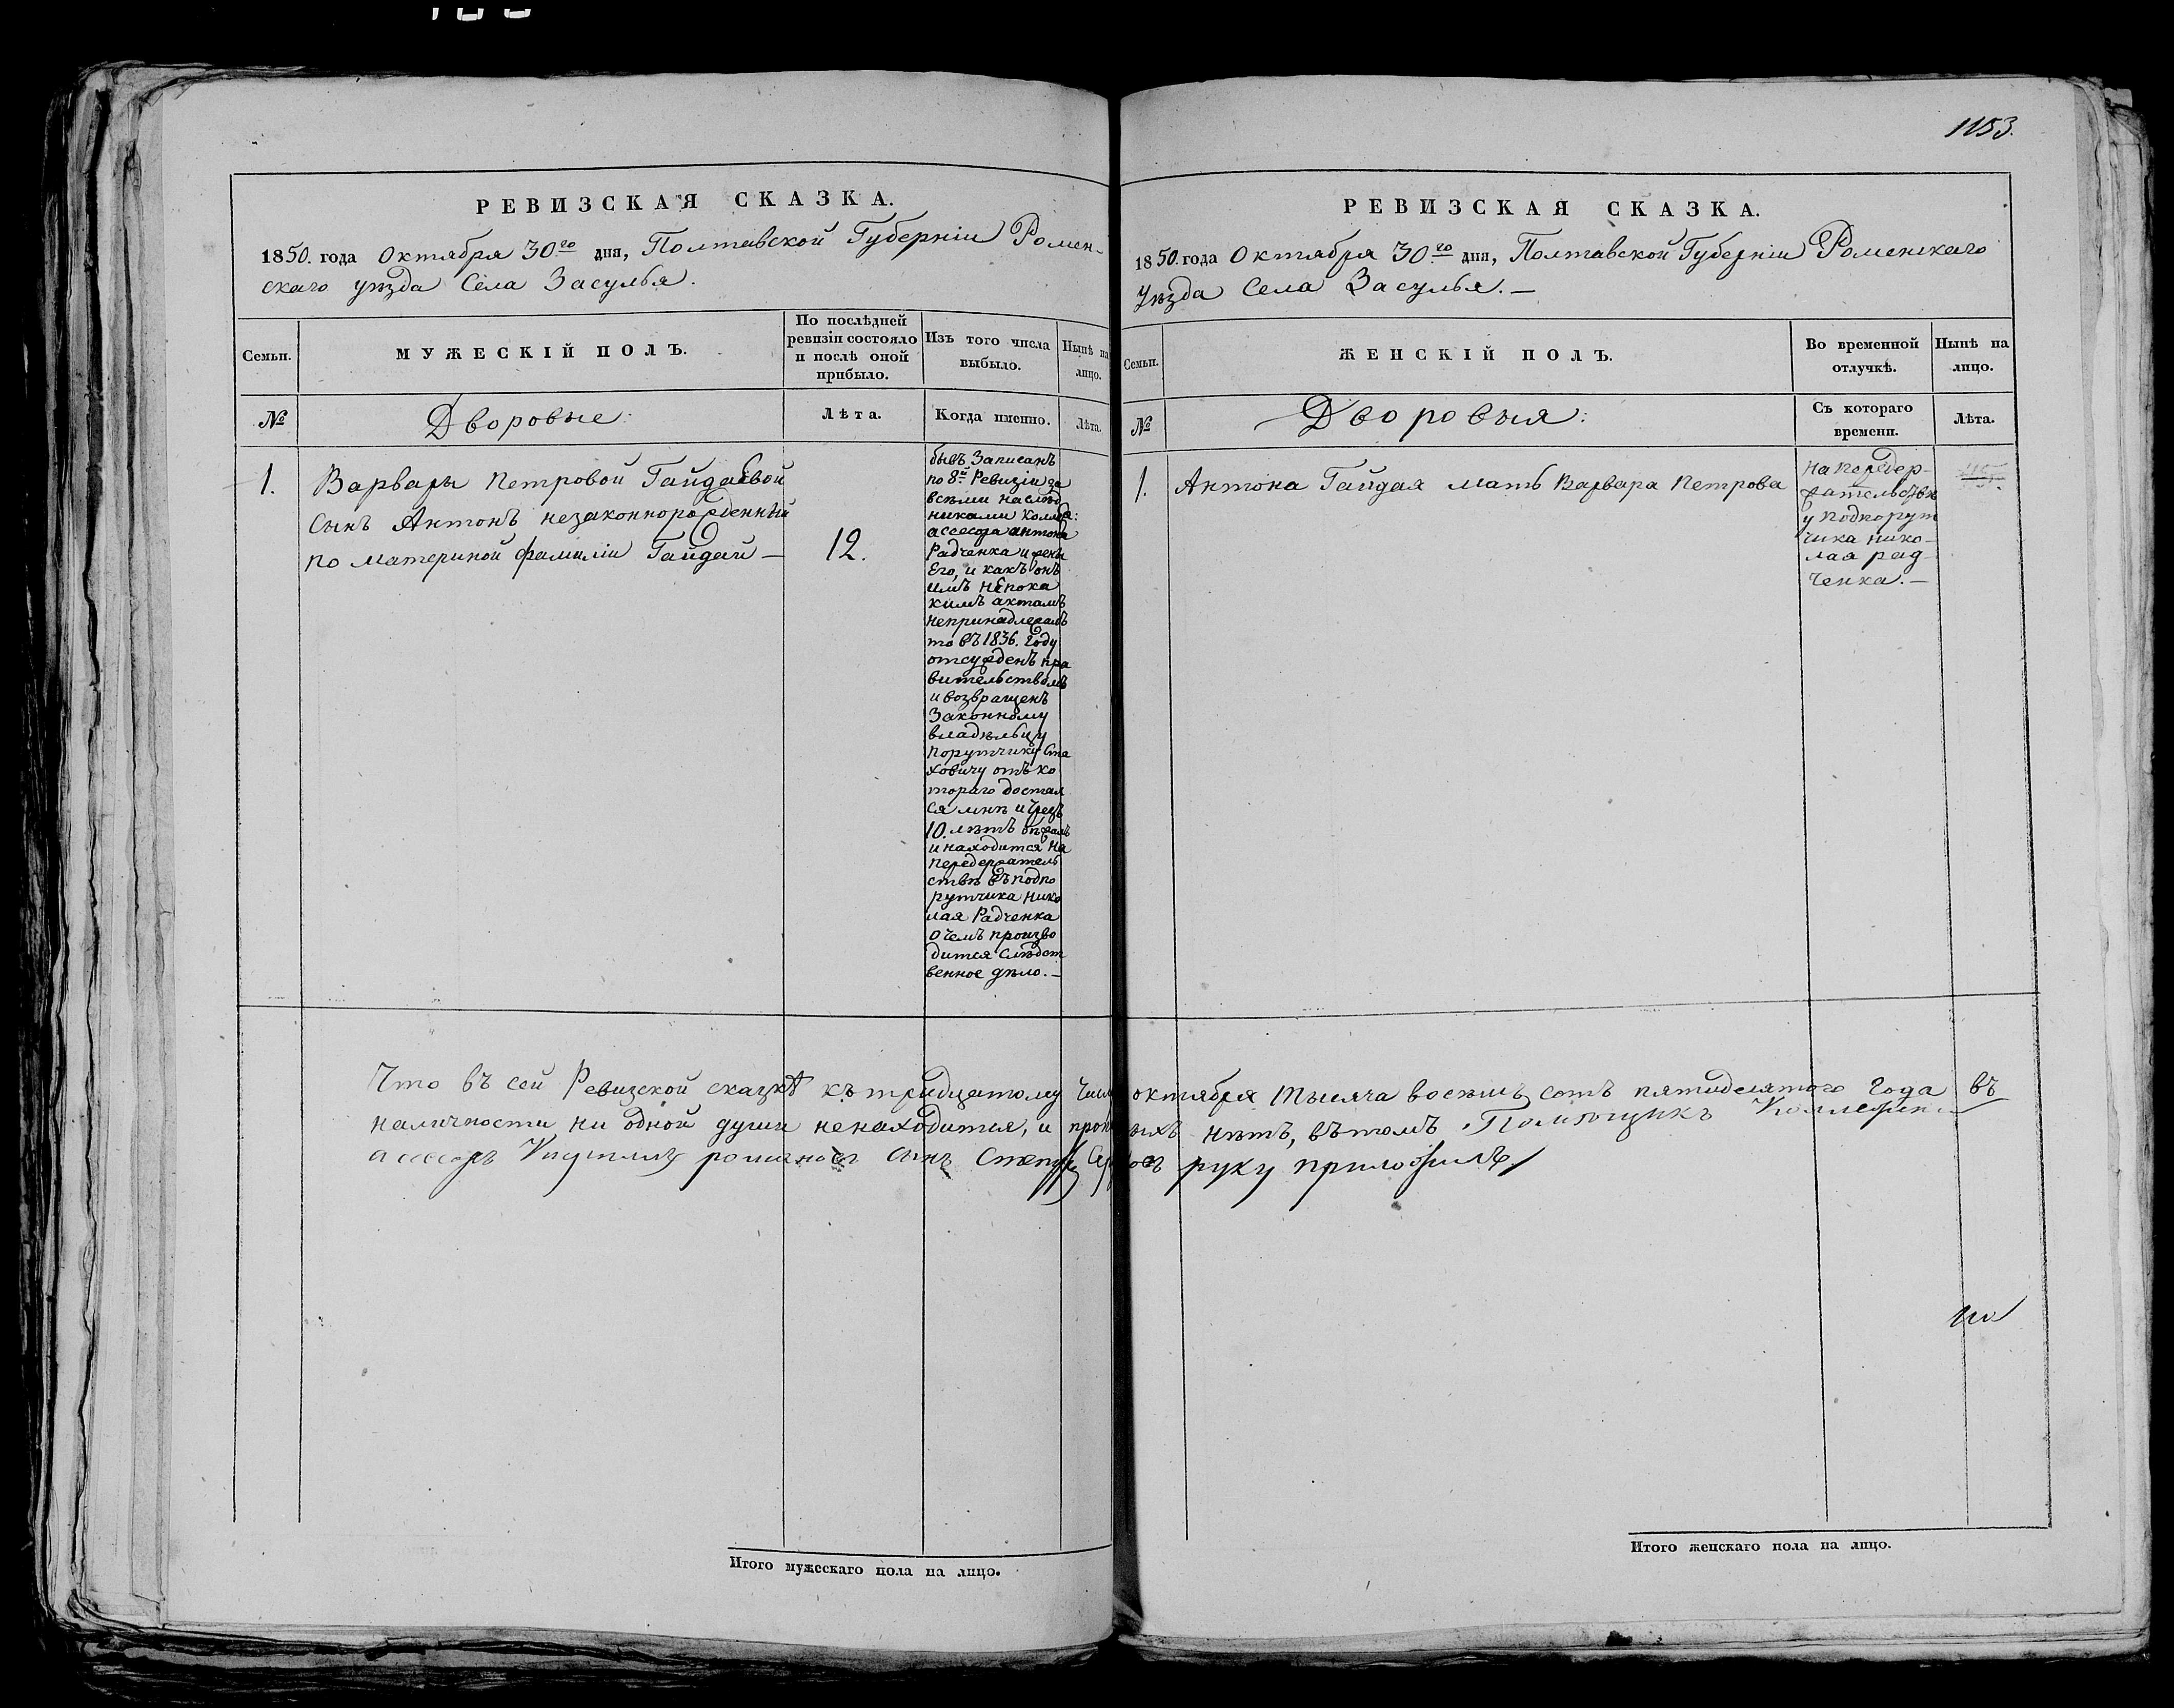 1153.
РЕВИЗСКАЯ СКАЗКА.
1850. года Октября 30го дня, Полтавской Губерніи Ромен-
скаго уѣзда Села Засулья.
Семьи.
МУЖЕСКІЙ ПОЛЪ.
По послѣдней
ревизіи состояло
и послѣ оной
прибыло.
Изъ того числа
выбыло.
Нынѣ на
лицо.
№
Дворовые:
Лѣта.
Когда именно.
Лѣта.
1.
Варвары Петровой Гайдаевой
сынъ Антонъ незаконнорожденный
по материной фамиліи Гайдай —
12.
бывъ записанъ
по 8й Ревизіи за
всѣми наслѣд
никами Коллеж:
ассесора антона
Радченка и
Его, и какъ онъ
имъ непока
кимъ актамъ
непринадлежалъ
то въ 1836. году
отсужденъ пра
вительствомъ
и возвращенъ
Законному
владѣльцу
порутчику Ста
ховичу отъ ко
тораго достал
ся мнѣ и чрезъ
10. лѣтъ бѣжалъ
и находится на
передержатель
ствѣ въ подпо
рутчика Нико
лая Радченка
о чемъ произво
дится слѣдст
венное дѣло. —
РЕВИЗСКАЯ СКАЗКА.
1850. года Октября 30го дня, Полтавской Губерніи Роменскаго
Уѣзда Села Засулья. —
Семьи.
ЖЕНСКІЙ ПОЛЪ.
Во временной
отлучкѣ.
Нынѣ на
лицо.
№
Дворовыя:
Съ котораго
времени.
Лѣта.
1.
Антона Гайдая мать Варвара Петрова
на передер-
жательствѣ
у подпорут
чика Нико-
лая Рад-
ченка. —
Что въ сей Ревизской сказкѣ къ тридцатому числ октября тысяча восемь сотъ пятидесятого года въ
наличности ни одной души ненаходится, и проп ыхъ нѣтъ, въ томъ Помѣщикъ Коллежск
ассесоръ романовъ сынъ руку приложилъ
Итого мужескаго пола на лицо.
Итого женскаго пола на лицо.